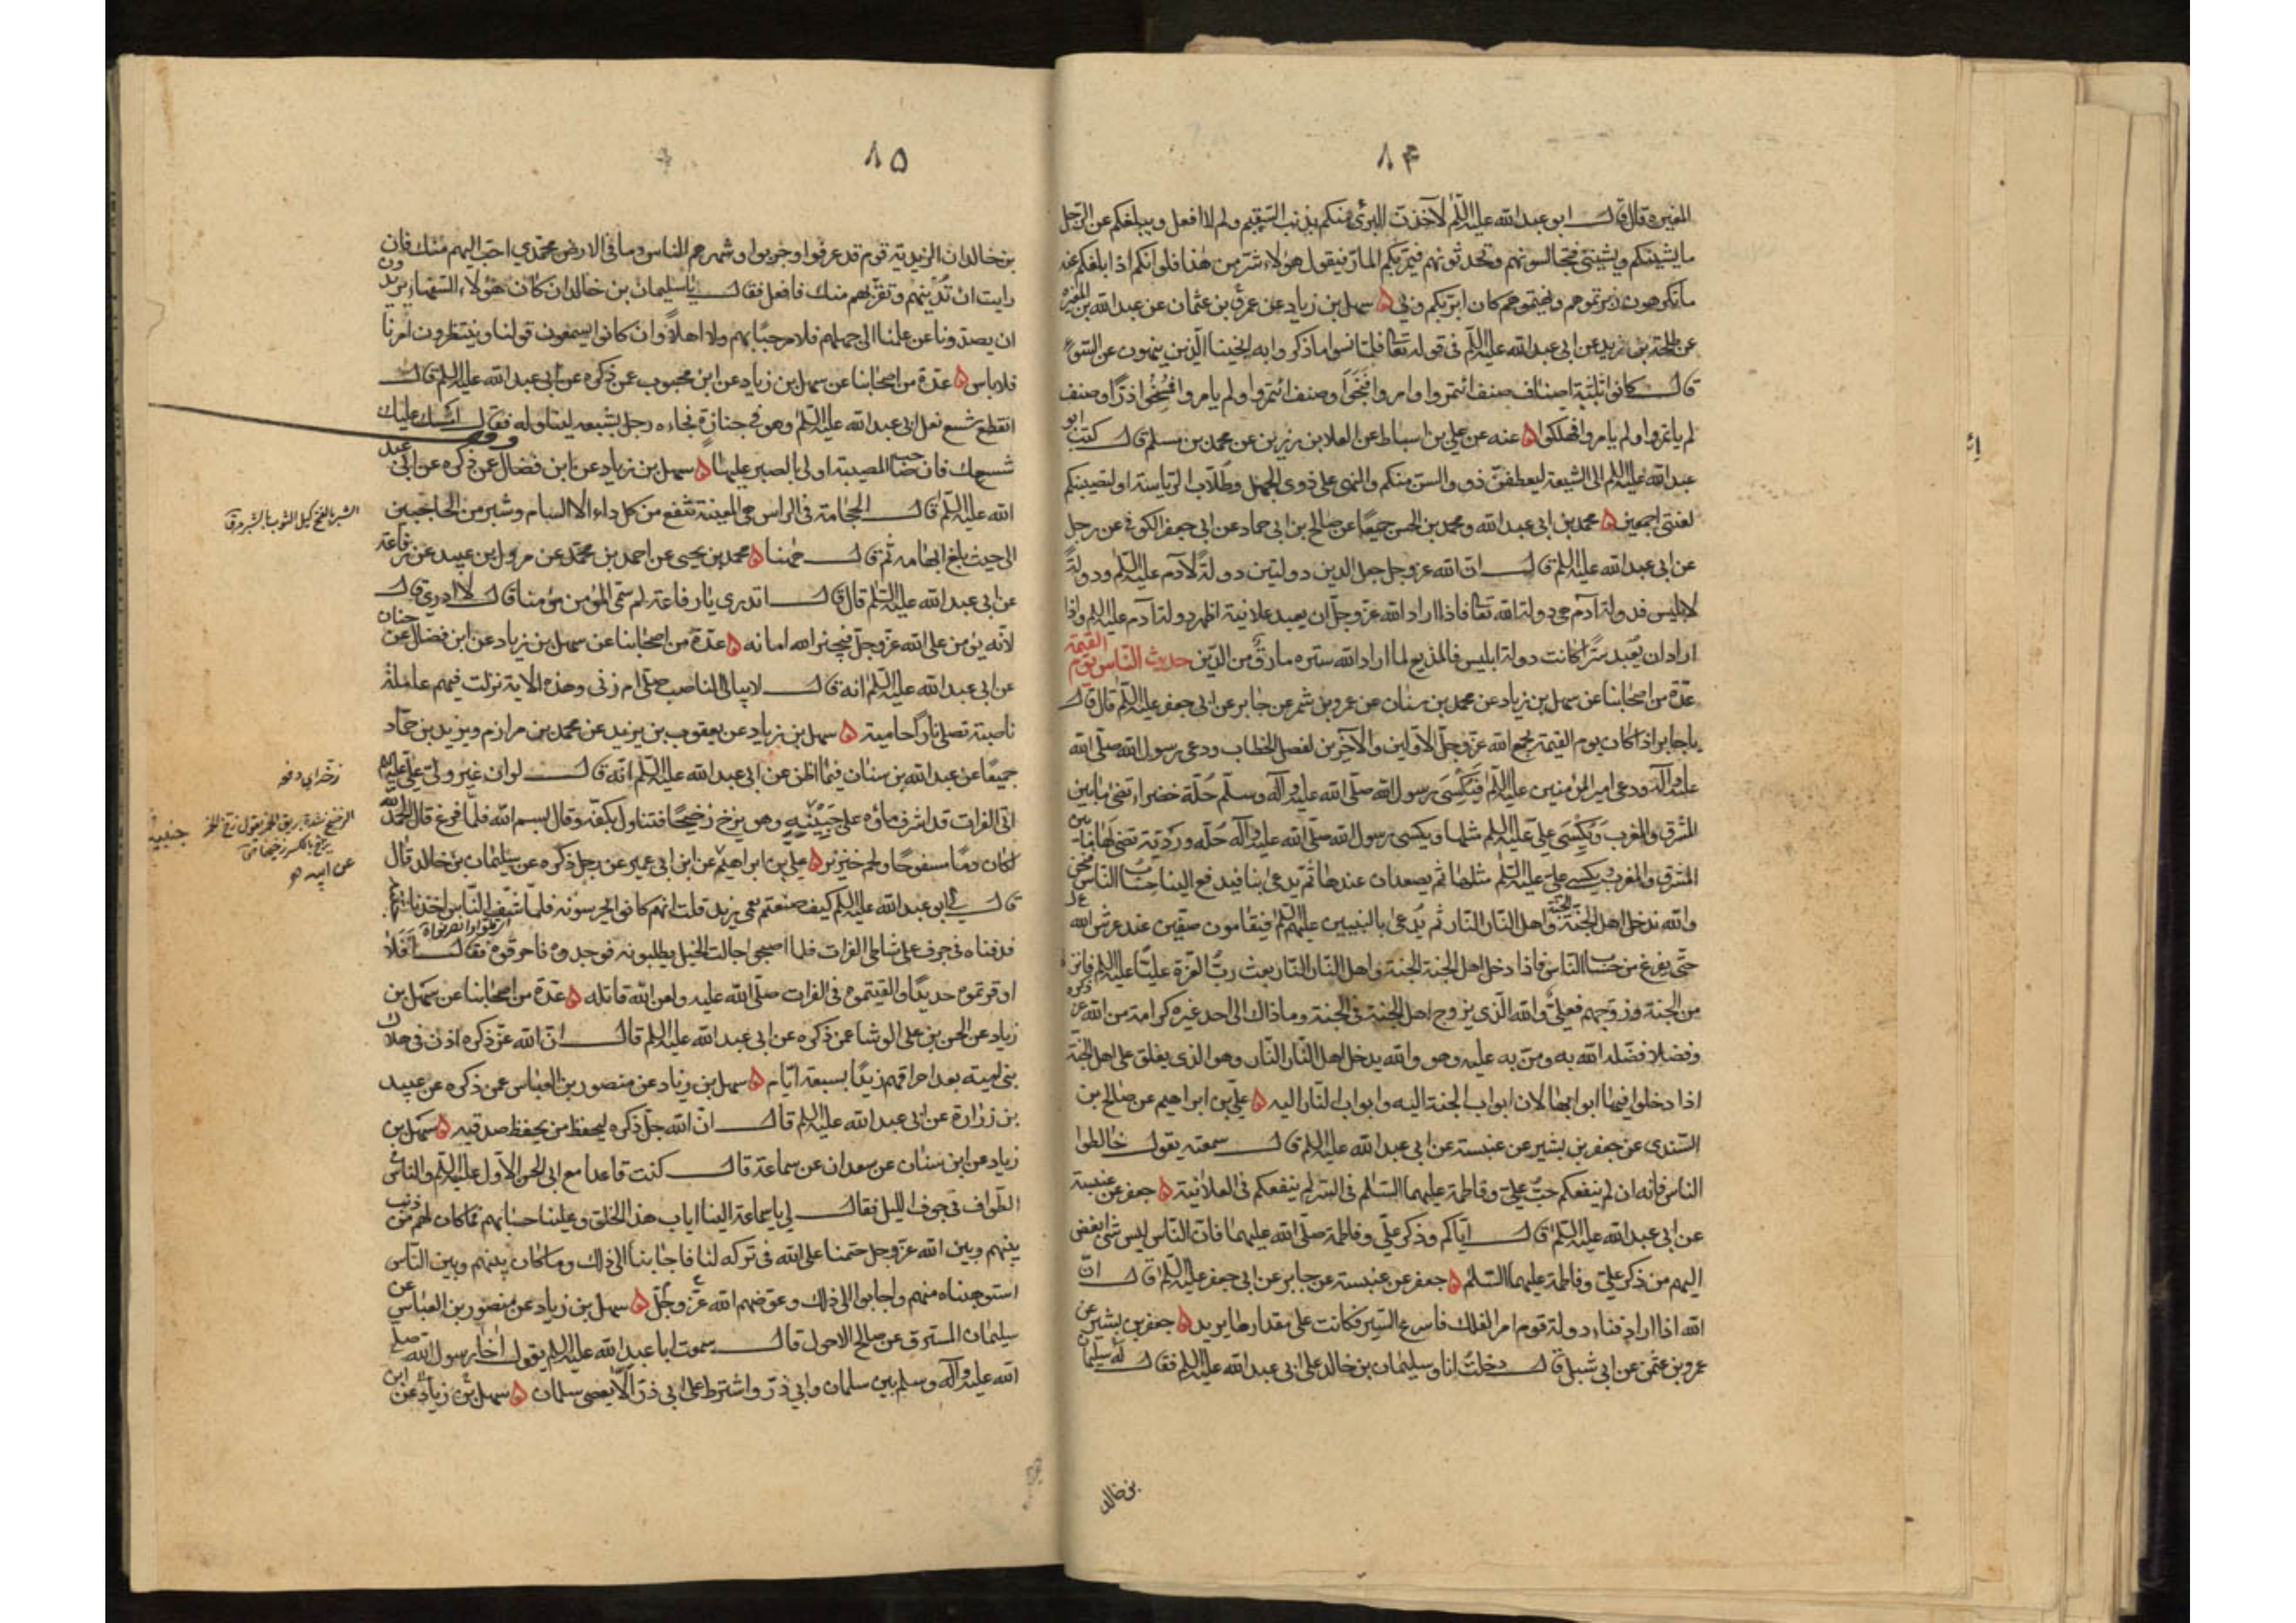 ٨٤
المغيرة قال قال ابو عبد الله عليه السلم لآخذن البرئ منكم بذنب السقيم ولم لا افعل ويبلغكم عن الرجل
ما يشينكم ويشينني فتجالسونهم وتحدثونهم فيمر بكم المار فيقول هؤلاء شر من هذا فلو انكم اذا بلغكم عنه
ما تكرهون زبرتموهم ونهيتموهم كان ابر بكم وبي ۵ سهل بن زياد عن عمرو بن عثمان عن عبد الله بن المغيرة
عن طلحة بن زيد عن ابي عبد الله عليه السلم في قوله تعالى فلما نسوا ما ذكروا به انجينا الذين ينهون عن السوء
قال كانوا ثلثة اصناف صنف ائتمروا وامروا فنجوا وصنف ائتمروا ولم يامروا فمسخوا ذرا وصنف
لم ياتمروا ولم يامروا فهلكوا ۵ عنه عن علي بن اسباط عن العلا بن رزين عن محمد بن مسلم قال كتب ابو
عبد الله عليه السلم الى الشيعة ليعطفن ذووا السن منكم والنهى على ذوي الجهل وطلاب الرياسة او لتصيبنكم
لعنتي اجمعين ۵ محمد بن ابي عبد الله ومحمد بن الحسن جميعا عن صالح بن ابي حماد عن ابي جعفر الكوفي عن رجل
عن ابي عبد الله عليه السلم قال ان الله عز وجل جعل الدين دولتين دولة لآدم عليه السلم ودولة
لابليس فدولة آدم هي دولة الله تعالى فاذا اراد الله عز وجل ان يعبد علانية اظهر دولة آدم عليه السلم واذا
اراد ان يعبد سرا كانت دولة ابليس فالمذيع لما اراد الله ستره مارق من الدين حديث الناس يوم القيمة
عدة من اصحابنا عن سهل بن زياد عن محمد بن سنان عن عمرو بن شمر عن جابر عن ابي جعفر عليه السلم قال قال
يا جابر اذا كان يوم القيمة جمع الله عز وجل الاولين والآخرين لفصل الخطاب ودعى رسول الله صلى الله
عليه وآله ودعى امير المؤمنين عليه السلم فيكسى رسول الله صلى الله عليه وآله وسلم حلة خضراء تضئ ما بين
المشرق والمغرب ويكسى علي عليه السلم مثلها ويكسى رسول الله صلى الله عليه وآله حلة وردية تضئ لها ما بين
المشرق والمغرب ويكسى علي عليه السلم مثلها ثم يصعدان عندها ثم يدعى بنا فيدفع الينا حساب الناس فنحن
والله ندخل اهل الجنة الجنة واهل النار النار ثم يدعى بالنبيين عليهم السلم فيقامون صفين عند عرش الله
حتى يفرغ من حساب الناس فاذا دخل اهل الجنة الجنة واهل النار النار بعث رب العزة عليا عليه السلم فانزلهم
من الجنة وزوجهم فعلي والله الذي يزوج اهل الجنة في الجنة وما ذاك الى احد غيره كرامة من الله عز ذكره
وفضلا فضله الله به ومن به عليه وهو والله يدخل اهل النار النار وهو الذي يغلق على اهل الجنة
اذا دخلوا فيها ابوابها لان ابواب الجنة اليه وابواب النار اليه ۵ علي بن ابراهيم عن صالح بن
السندي عن جعفر بن بشير عن عنبسة عن ابي عبد الله عليه السلم قال سمعته يقول خالطوا
الناس فانه ان لم ينفعكم حب علي وفاطمة عليهما السلم في السر لم ينفعكم في العلانية ۵ جعفر عن عنبسة
عن ابي عبد الله عليه السلم قال اياكم وذكر علي وفاطمة صلى الله عليهما فان الناس ليس شئ ابغض
اليهم من ذكر علي وفاطمة عليهما السلم ۵ جعفر عن عنبسة عن جابر عن ابي جعفر عليه السلم قال ان
الله اذا اراد فناء دولة قوم امر الفلك فاسرع السير فكانت على مقدار ما يريد ۵ جعفر بن بشير عن
عمرو بن عثمن عن ابي شبل قال دخلت انا وسليمان بن خالد على ابي عبد الله عليه السلم فقال له سليمان
بن خالد
٨٥
بن خالد ان الزيدية قوم قد عرفوا وجربوا وشهرهم الناس وما في الارض محمدي احب اليهم منك فان
رايت ان تدنيهم وتقربهم منك فافعل فقال يا سليمان بن خالد ان كان هؤلاء السفهاء يريدون
ان يصدونا عن علمنا الى جهلهم فلا مرحبا بهم ولا اهلا وان كانوا يسمعون قولنا وينتظرون امرنا
فلا باس ۵ عدة من اصحابنا عن سهل بن زياد عن ابن محبوب عن ذكره عن ابي عبد الله عليه السلم قال
انقطع شسع نعل ابي عبد الله عليه السلم وهو في جنازة فجاءه رجل بشسعه ليناوله فقال امسك عليك
شسعك فان صاحب المصيبة اولى بالصبر عليها ۵ سهل بن زياد عن ابن فضال عن ذكره عن ابي عبد
الله عليه السلم قال الحجامة في الراس هي المغيثة تنفع من كل داء الا السام وشبر من الحاجبين
الى حيث بلغ ابهامه ثم قال ههنا ۵ محمد بن يحيى عن احمد بن محمد عن مروك بن عبيد عن رفاعة
عن ابي عبد الله عليه السلم قال قال اتدري يا رفاعة لم سمي المؤمن مؤمنا قال لا ادري قال
لانه يؤمن على الله عز وجل فيجيز الله امانه ۵ عدة من اصحابنا عن سهل بن زياد عن ابن فضال عن حنان
عن ابي عبد الله عليه السلم انه قال لا يبالي الناصب صلى ام زنى وهذه الاية نزلت فيهم عاملة
ناصبة تصلى نارا حامية ۵ سهل بن زياد عن يعقوب بن يزيد عن محمد بن مرازم ويزيد بن حماد
جميعا عن عبد الله بن سنان فيما اظن عن ابي عبد الله عليه السلم انه قال لو ان غير ولي علي عليه السلم
اتى الفرات قد اشرف ماؤه على جنبيه وهو يزخ زخيخا فتناول بكفه وقال بسم الله فلما فرغ قال الحمد لله
لكان دما مسفوحا ولحم خنزير ۵ علي بن ابراهيم عن ابن ابي عمير عن رجل ذكره عن سليمان بن خالد قال
قال لي ابو عبد الله عليه السلم كيف صنعتم بعمي زيد قلت انهم كانوا يحرسونه فلما شف الناس اخذنا
فدفناه في جرف على شاطئ الفرات فلما اصبحوا جالت الخيل يطلبونه فوجدوه فاحرقوه فقال افلا
اوقرتموه حديدا والقيتموه في الفرات صلى الله عليه ولعن الله قاتله ۵ عدة من اصحابنا عن سهل بن
زياد عن الحسن بن علي الوشا عمن ذكره عن ابي عبد الله عليه السلم قال ان الله عز ذكره اذن في هلاك
بني امية بعد احراقهم زيدا بسبعة ايام ۵ سهل بن زياد عن منصور بن العباس عمن ذكره عن عبيد
بن زرارة عن ابي عبد الله عليه السلم قال ان الله جل ذكره ليحفظ من يحفظ صديقه ۵ سهل بن
زياد عن ابن سنان عن سعدان عن سماعة قال كنت قاعدا مع ابي الحسن الاول عليه السلم والناس
الطواف في جوف الليل فقال لي يا سماعة الينا اياب هذا الخلق وعلينا حسابهم فما كان لهم من ذنب
بينهم وبين الله عز وجل حتمنا على الله في تركه لنا فاجابنا الى ذلك وما كان بينهم وبين الناس
استوهبناه منهم واجابوا الى ذلك وعوضهم الله عز وجل ۵ سهل بن زياد عن منصور بن العباس عن
سليمان المسترق عن صالح الاحول قال سمعت ابا عبد الله عليه السلم يقول اخا رسول الله صلى
الله عليه وآله وسلم بين سلمان وابي ذر واشترط على ابي ذر الا يعصي سلمان ۵ سهل بن زياد عن ابن
الشبر بالفتح كيل الثوب بالشبر
زخه اي دفعه
عن ابيه